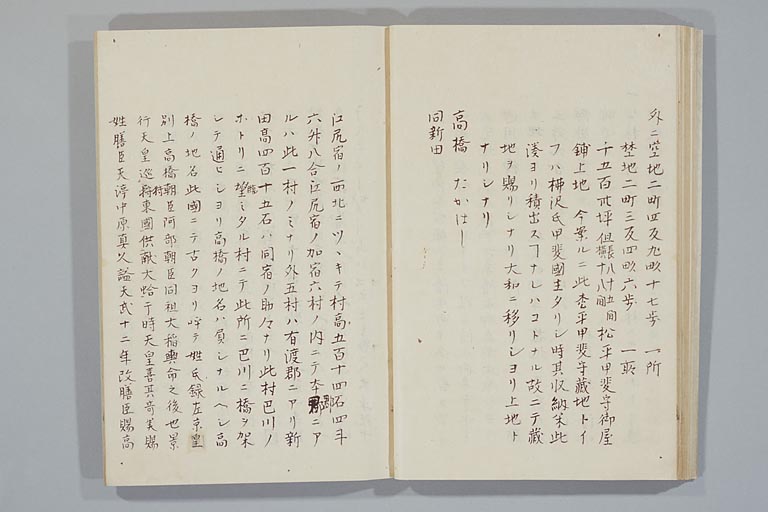 外ニ空地二町四反九畝十七歩　一所
埜地二町三反四畝六歩　一所
千五百　坪但　十八間　松平甲斐守御屋
鋪上地　今案ルニ此　平甲斐守蔵地トイ
フハ柳沢氏甲斐國主タリシ時其収納米此
湊ヨリ積出スコナレハコトナル故ニテ蔵
地ヲ賜リシナリ大和ニ移リシヨリ上地ト
ナリシナリ
高橋　たかはし
同新田
江尻宿ノ西北ニツヽキテ村高五百十四石四斗
六升八合江尻宿ノ加宿六村ノ内ニテ本郡ニア
ルハ此一村ノミナリ外五村ハ有渡郡ニアリ新
田高四百十五石ハ同宿ノ助々ナリ此村巴川ノ
ホトリニ臨ミタル村ニテ此所ニ巴川ニ橋ヲ架
シテ通ヒシヨリ高橋ノ地名ハ負シナルヘシ高
橋ノ地名此國ニテ古クヨリ呼テ姓氏録左京皇
別上高橋朝臣阿部朝臣同祖大稲輿命之後也景
行天皇巡狩東國供献大蛤于時天皇喜其奇美賜
姓膳臣天渟中原真人謚天武十二年改膳臣賜高